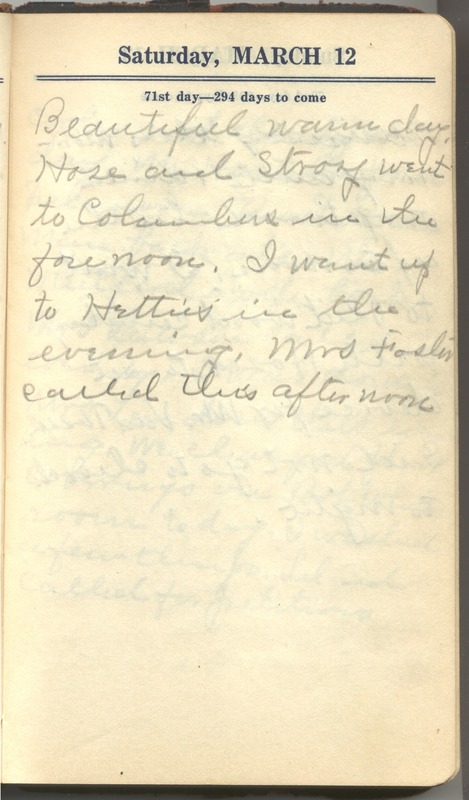 Saturday, MARCH 12
71st day—294 days to come
Beautiful warm day.
Hose and Strong went
to Columbus in the
fore noon. I want up
to Hettie's in the
evening. Mrs Foster
called this after noon